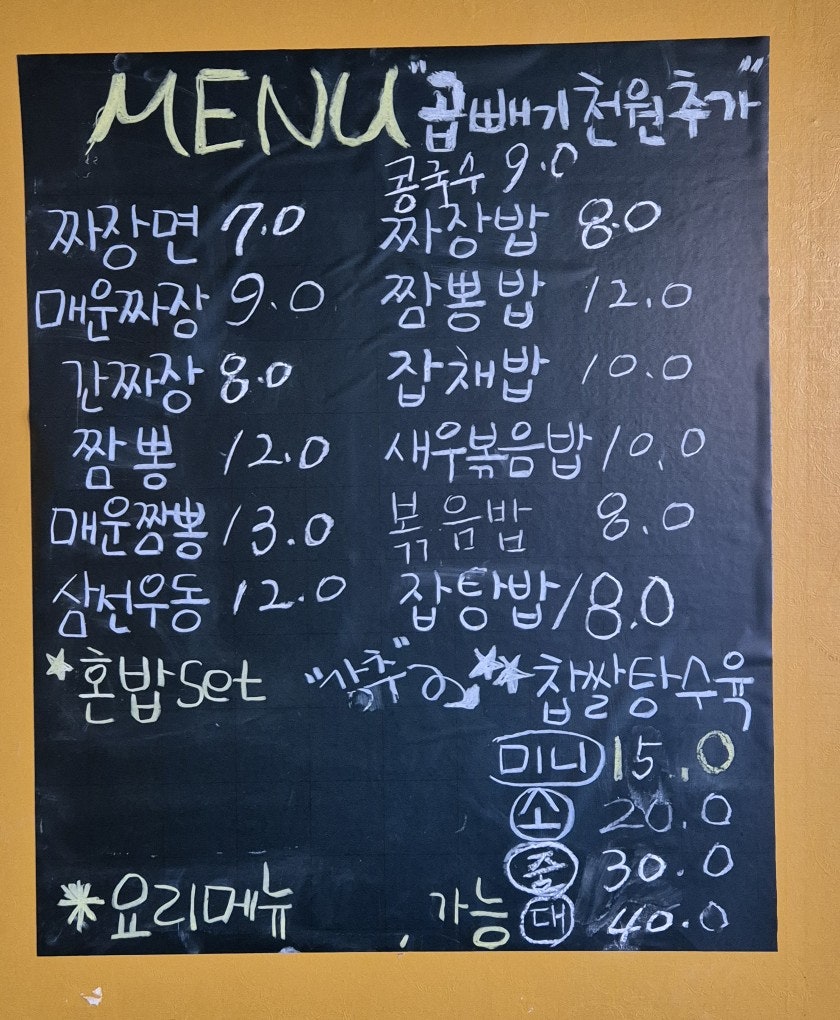 MENU "곱빼기천원추가"
콩국수 9.0
짜장면 7.0 짜장밥 8.0
매운짜장 9.0 짬뽕밥 12.0
간짜장 8.0 잡채밥 10.0
짬뽕 12.0 새우볶음밥 10.0
매운짬뽕 13.0 볶음밥 8.0
삼선우동 12.0 잡탕밥 18.0
*혼밥set "강추" **찹쌀탕수육
미니 15.0
소 20.0
중 30.0
*요리메뉴 , 가능 대 40.0